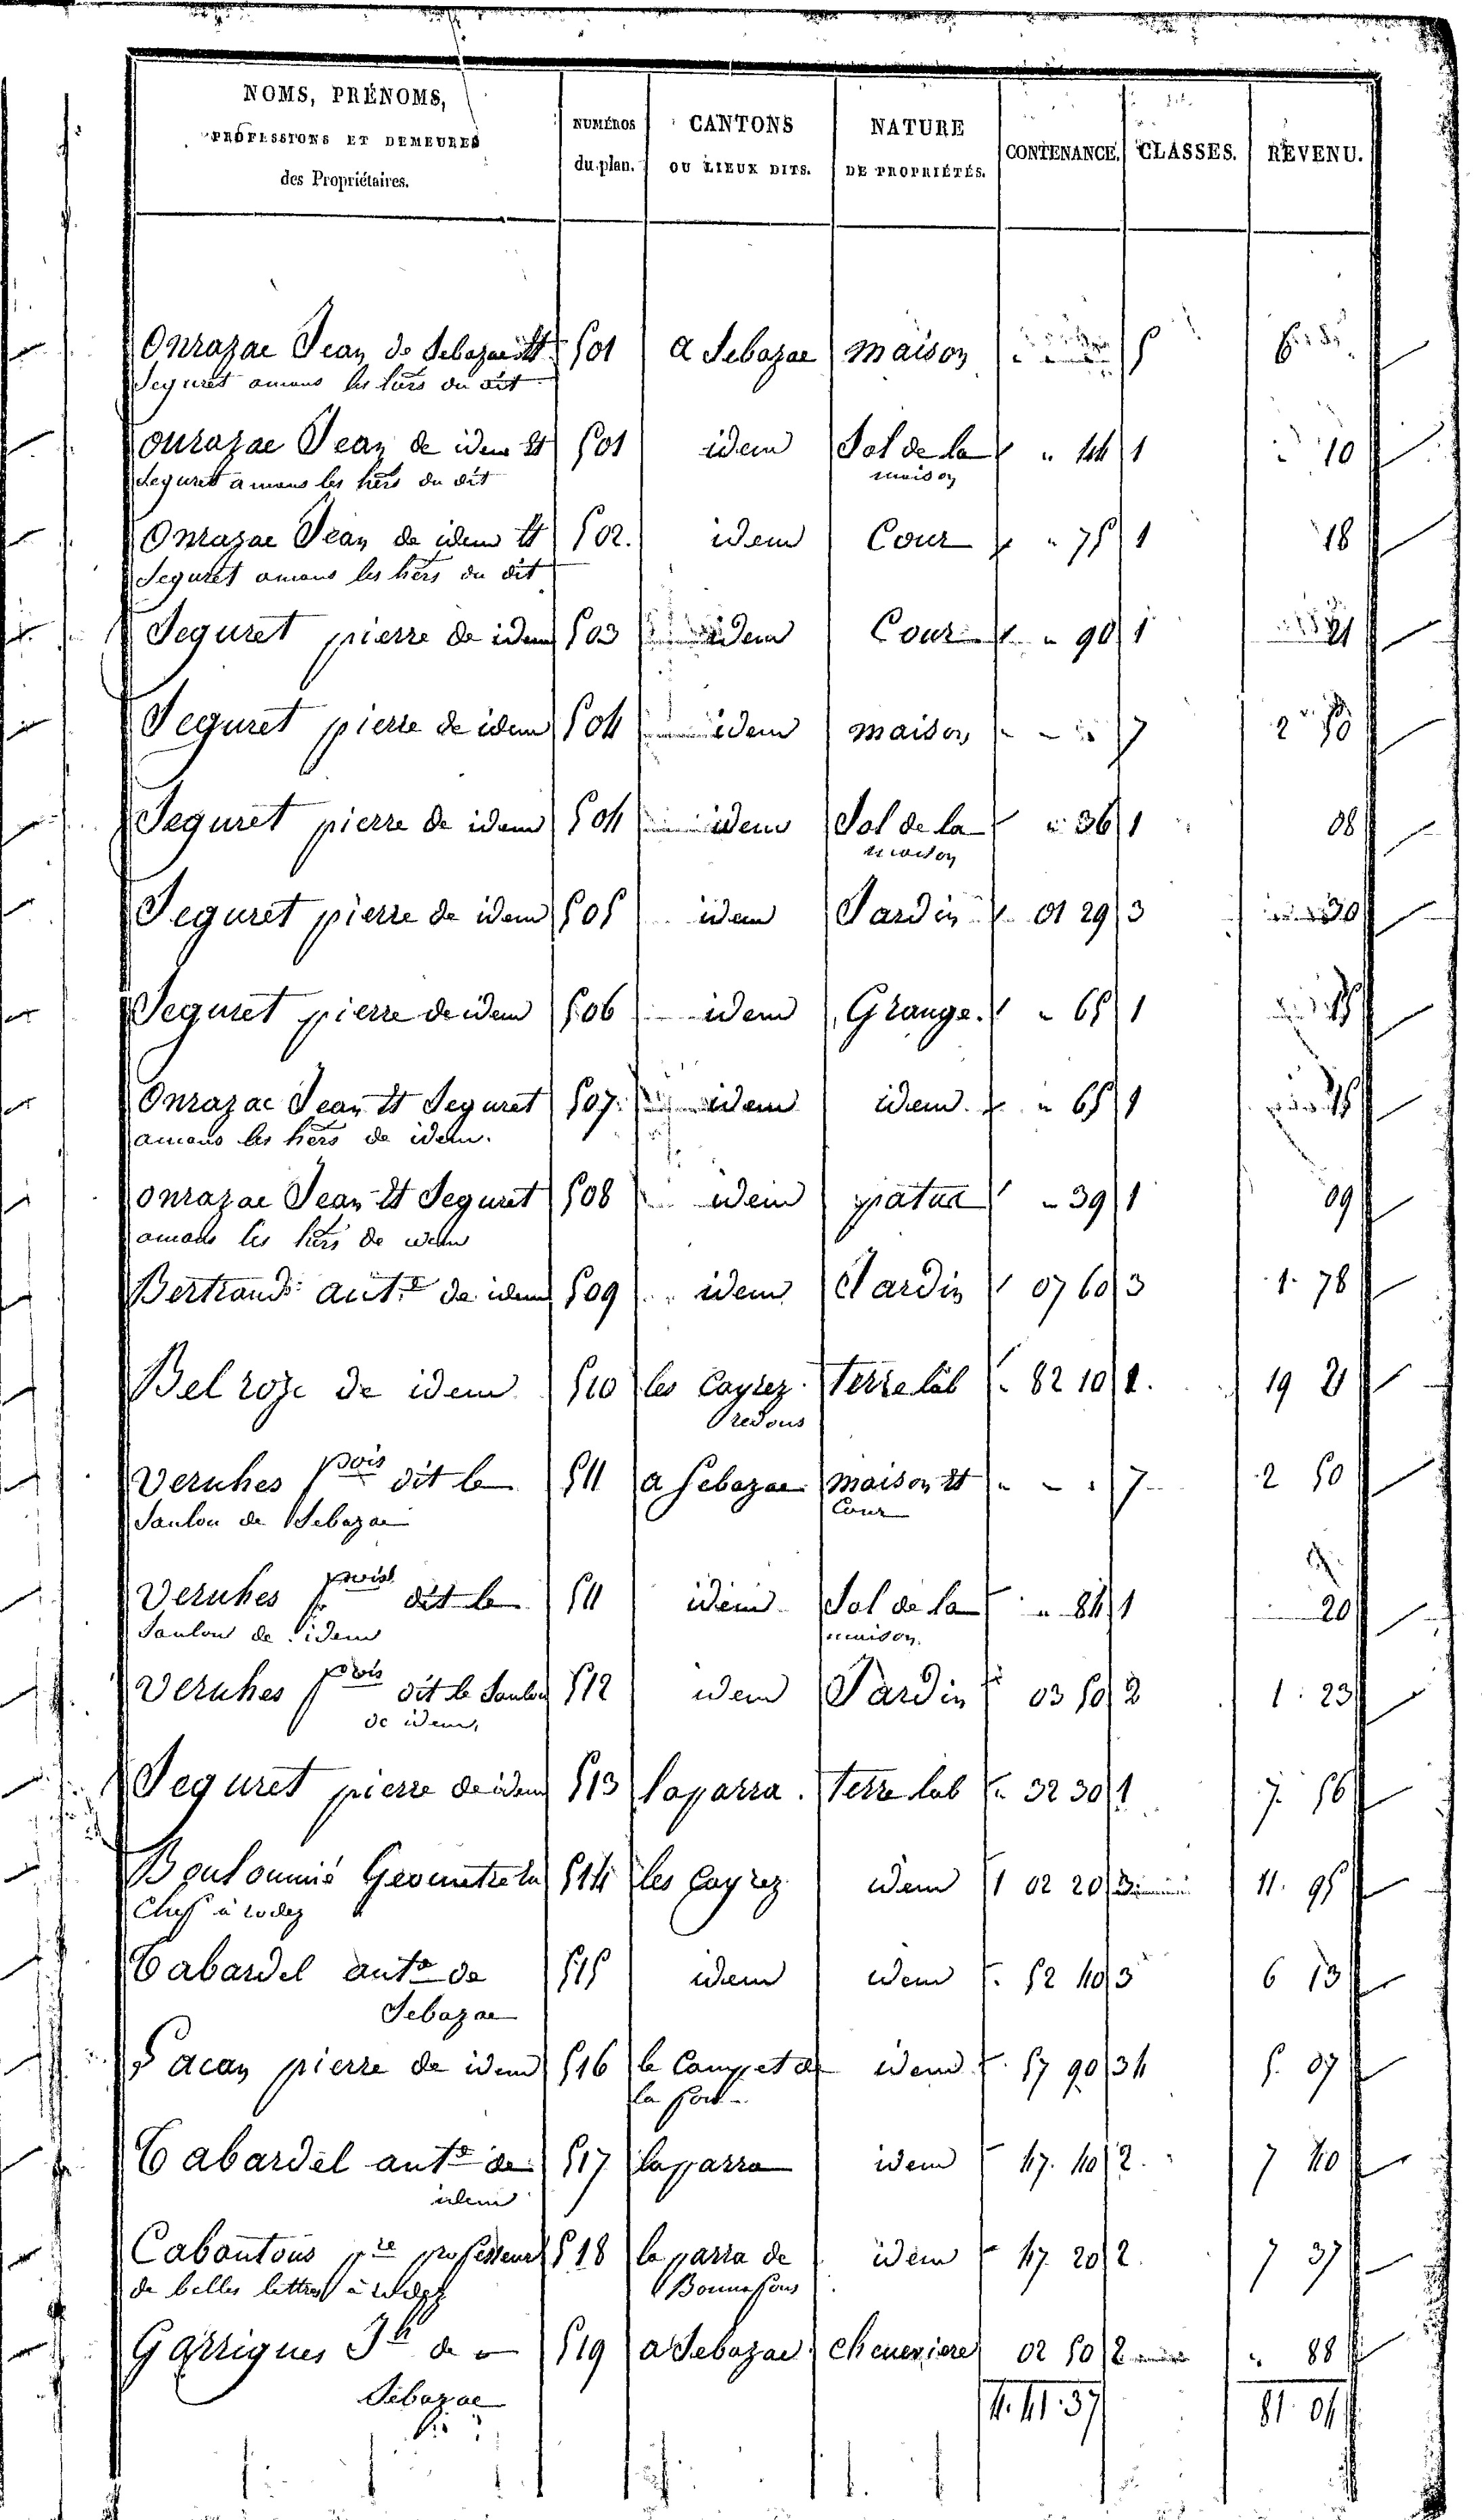 NOMS, PRÉNOMS, PROFESSIONS ET DEMEURES des Propriétaires. NUMÉROS du plan. CANTONS OU LIEUX DITS. NATURE DE PROPRIÉTÉS. CONTENANCE. CLASSES. REVENU.
Onrazac Jean de Sebazac et 501 a Sebazac maison 5
Seguret amans les hers du dit
onrazac Jean de idem et 501 idem Sol de la " 44 1 10
Seguret amans les hers du dit maison
Onrazac Jean de idem et 502. idem Cour " 75 1 18
Seguret amans les hers du dit
Seguret pierre de idem 503 idem Cour " 90 1 21
Seguret pierre de idem 504 idem maison 7 2 50
Seguret pierre de idem 504 idem Sol de la " 36 1 08
maison
Seguret pierre de idem 505 idem Jardin 01 29 3 30
Seguret pierre de idem 506 idem Grange. " 65 1 15
Onrazac Jean et Seguret 507. idem idem. " 65 1 15
amans les hers de idem.
onrazac Jean et Seguret 508 idem patus " 39 1 09
amans les hers de idem
Bertrand ant.e de idem 509 idem Jardin 07 60 3 1. 78
Bel roze de idem 510 les Cayrez terre lab 82 10 1. 19 21
redous
Veruhes fcois dit le 511 a Sebazac maison et " " " 7 2 50
Saulou de Sebazac Cour
Veruhes fcois dit le 511 idem Sol de la " 84 1 20
Saulou de idem maison.
Veruhes fcois dit le Saulou 512 idem Jardin 03 50 2 1. 23
de idem,
Seguret pierre de idem 513 laparra. terre lab " 32 30 1 7. 56
Boulommié Geometre en 514 les Cayrez idem 1 02 20 3 11. 95
Chef à rodez
Cabardel ant.e de 515 idem idem 52 40 3 6 13
Sebazac
Lacan pierre de idem 516 le Camp et de idem 57 90 34 5. 07
la font
Cabardel ant.e de 517 laparra idem 47. 40 2. 7 40
idem
Cabantous pre professeur 518 la parra de idem 47 20 2. 7 37
de belles lettres à rodez Bonnefous
Garrigues Jh de 519 a Sebazac cheneviere 02 50 2 " 88
Sebazac
4. 41. 37 81. 04